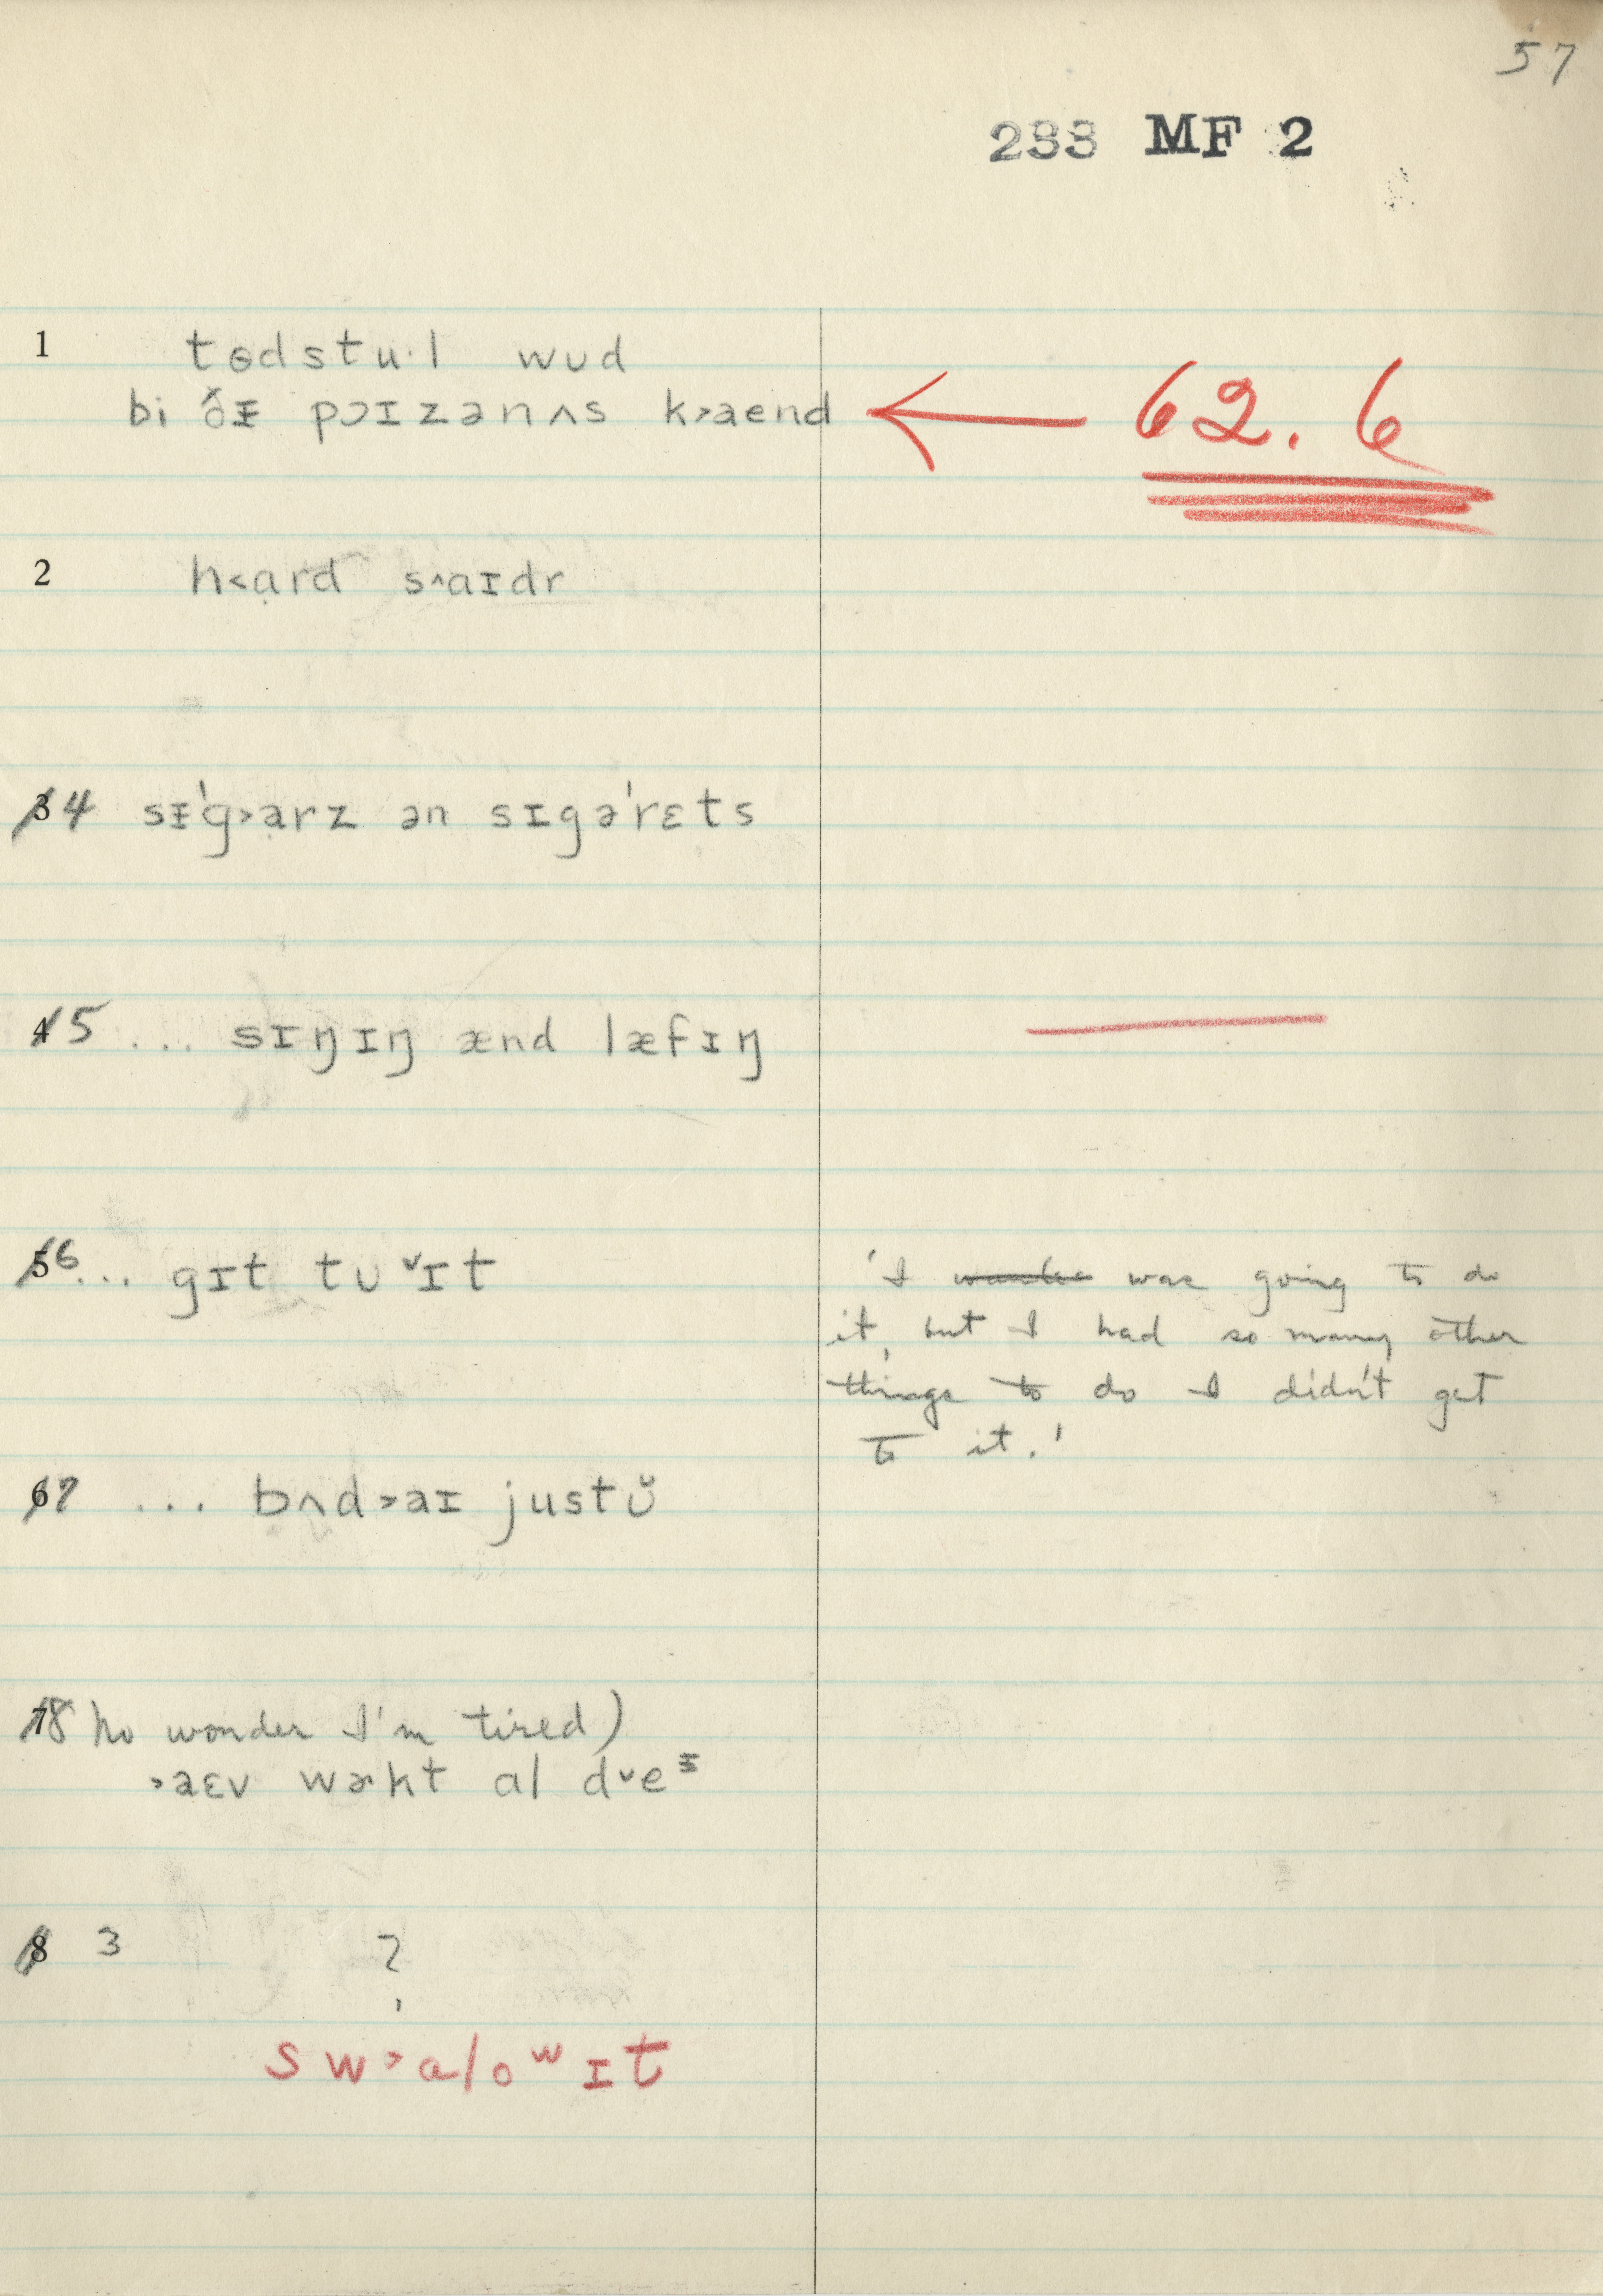 57
233 MF 2
1 tɵdstu·l wʊd
bi ðᵻ pɔɪzənʌs k˃aend ← 62. 6
2 h˂ɑrd s^aɪdr
3 4 sᵻ'g˃ɑrz ən sɪgə'rɛts
4 5 ... sɪŋɪŋ ænd læfɪŋ
5 6 ... gɪt tʊ ˅ɪt
'I was going to do
it, but I had so many other
things to do I didn't get
to it.'
6 7 ... bʌd˃aɪ justʊ̆
7 8 No wonder I'm tired)
˃aɛv wɚkt ɑl d˅eᵻ
8 3 ?
sw˃ɑloʷɪt